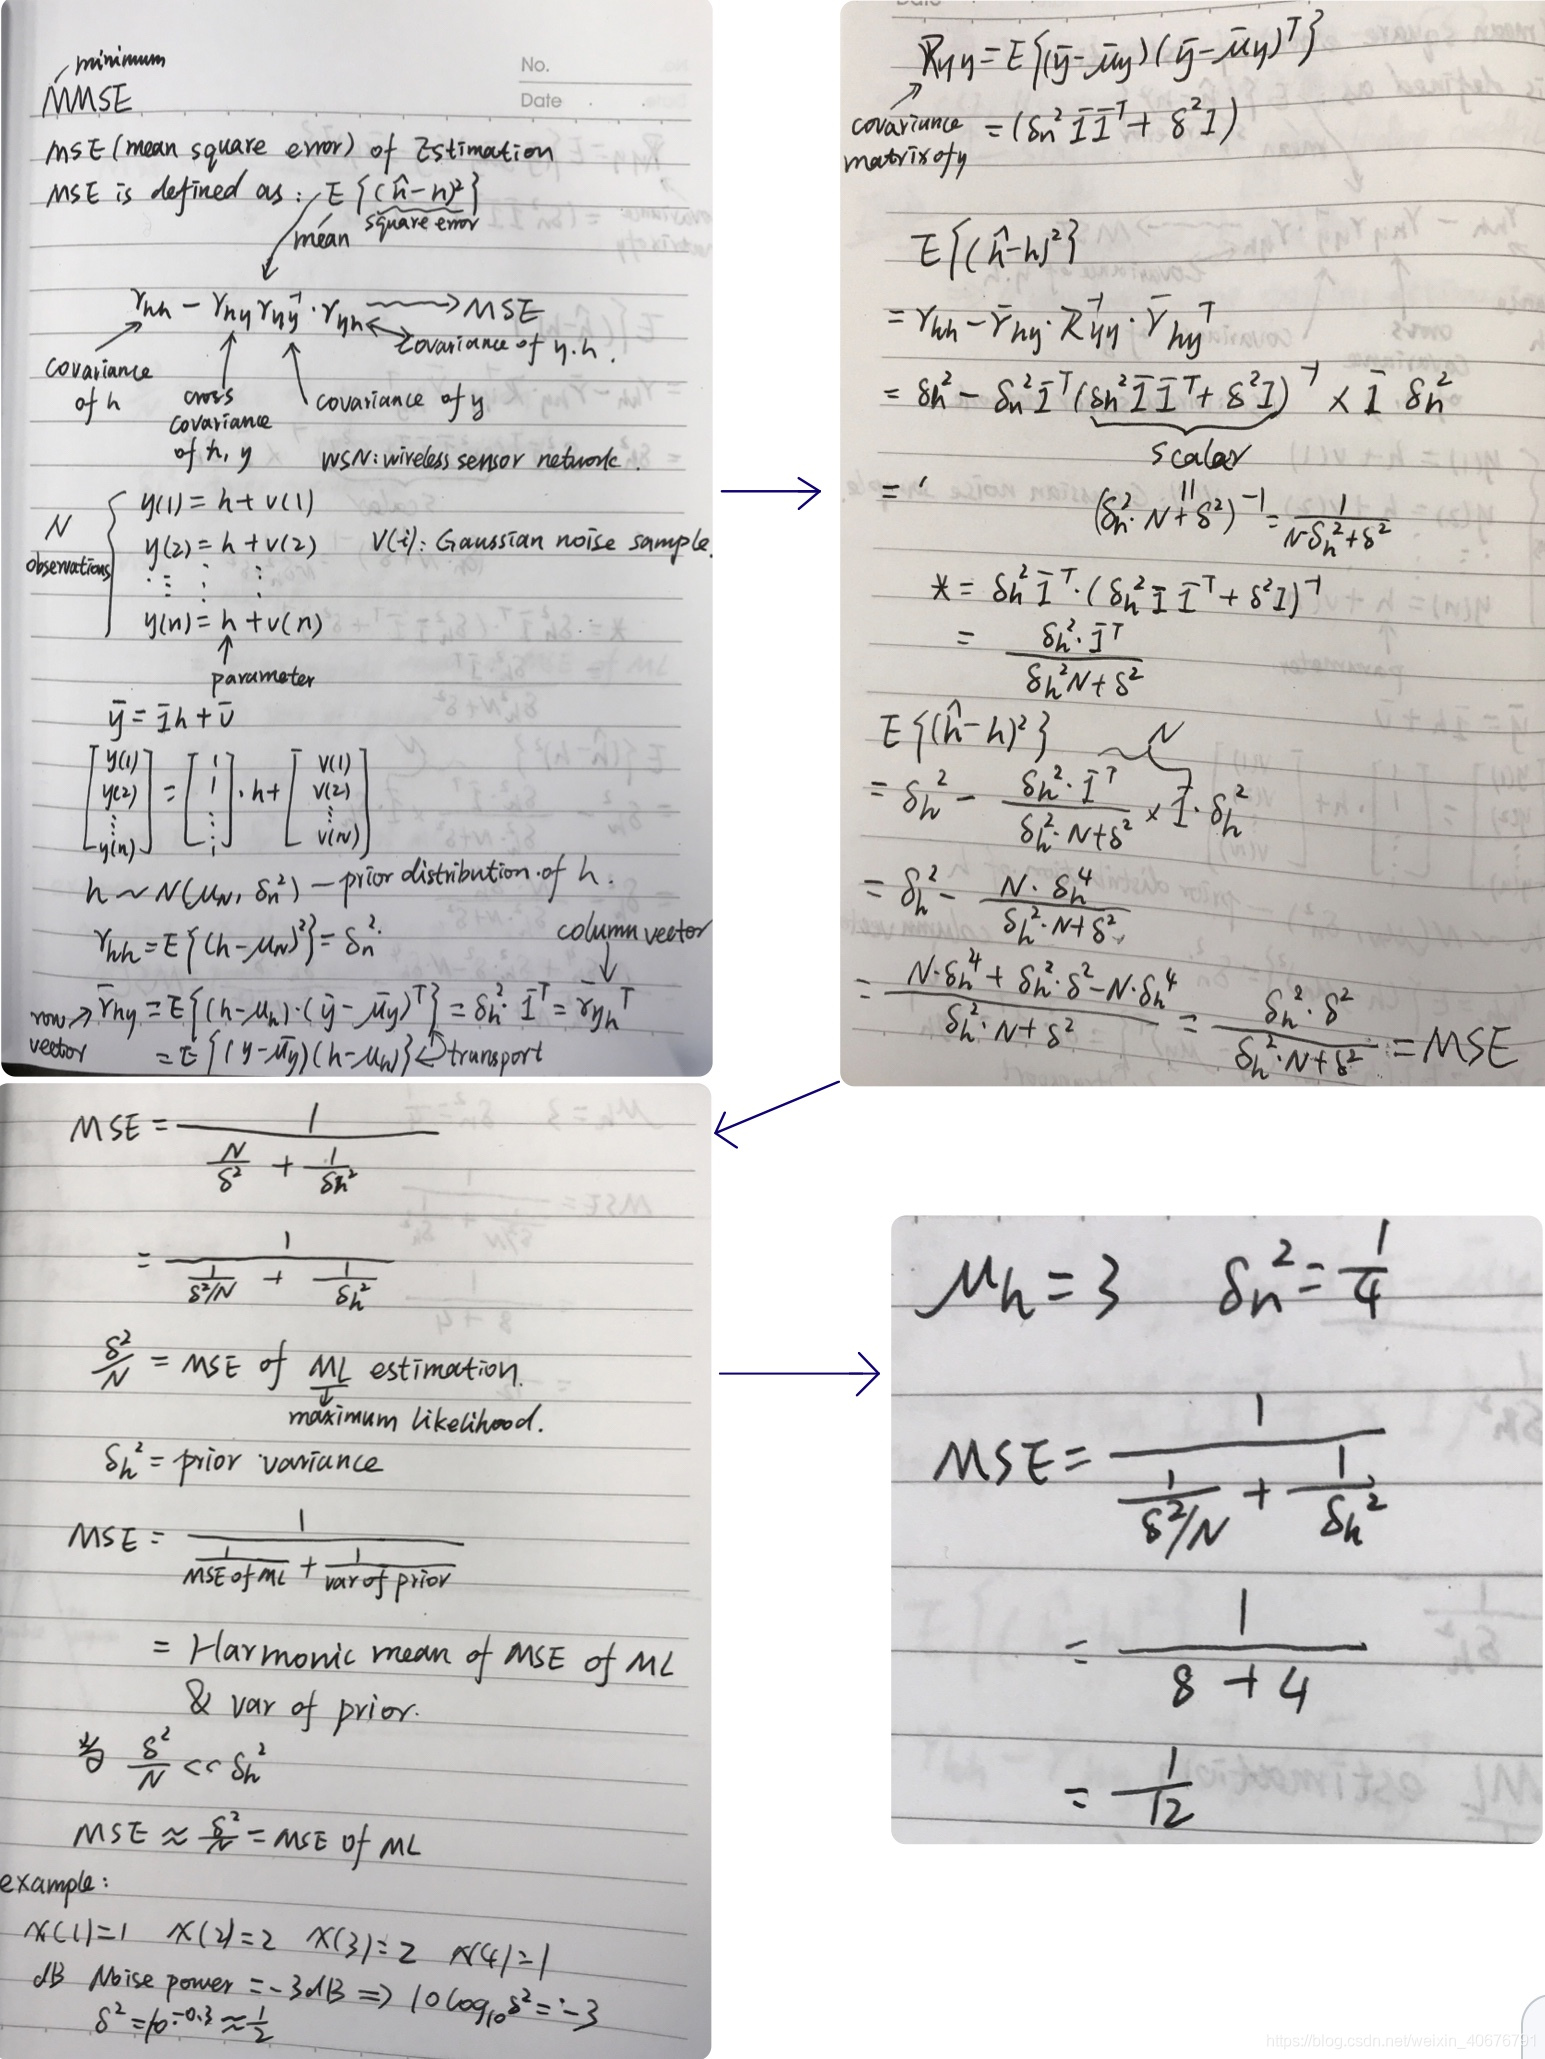 minimum
MMSE
No.
Date
MSE (mean square error) of Estimation
MSE is defined as: E{(ĥ-h)²}
mean square error
r_hh - r_hy r_yy⁻¹ · r_yh → MSE
covariance of h
cross covariance of h, y
covariance of y
covariance of y.h.
WSN: wireless sensor network.
N observations
y(1) = h + v(1)
y(2) = h + v(2) V(i): Gaussian noise sample.
⋮ = ⋮ ⋮
y(n) = h + v(n)
parameter
ȳ = 1̄h + v̄
[y(1) y(2) ⋮ y(n)] = [1 1 ⋮ 1] · h + [v(1) v(2) ⋮ v(N)]
h ~ N(μ_N, δ_n²) — prior distribution of h.
r_hh = E{(h-μ_N)²} = δ_n²
column vector
row vector → r̄_hy = E{(h-μ_h)·(ȳ-μ̄_y)ᵀ} = δ_h²·1̄ᵀ = r̄_yhᵀ
= E{(y-μ̄_y)(h-μ_h)} ← transport
Date
R_yy = E{(ȳ-μ̄_y)(ȳ-μ̄_y)ᵀ}
covariance matrix of y
= (δ_n² 1̄ 1̄ᵀ + δ² I)
E{(ĥ-h)²}
= r_hh - r̄_hy · R_yy⁻¹ · r̄_hyᵀ
= δ_h² - δ_n² 1̄ᵀ (δ_h² 1̄ 1̄ᵀ + δ² I)⁻¹ × 1̄ δ_h²
scalar
=
(δ_h²·N + δ²)⁻¹ = 1/(Nδ_h²+δ²)
* = δ_h² 1̄ᵀ · (δ_h² 1̄ 1̄ᵀ + δ² I)⁻¹
= δ_h²·1̄ᵀ / (δ_h² N + δ²)
E{(ĥ-h)²} N
= δ_h² - δ_h²·1̄ᵀ / (δ_h²·N+δ²) × 1̄ · δ_h²
= δ_h² - N·δ_h⁴ / (δ_h²·N+δ²)
= (N·δ_h⁴ + δ_h²·δ² - N·δ_h⁴) / (δ_h²·N+δ²) = δ_h²·δ² / (δ_h²·N+δ²) = MSE
MSE = 1 / (N/δ² + 1/δ_h²)
= 1 / (1/(δ²/N) + 1/δ_h²)
δ²/N = MSE of ML estimation.
maximum likelihood.
δ_h² = prior variance
MSE = 1 / (1/MSE of ML + 1/var of prior)
= Harmonic mean of MSE of ML
& var of prior.
当 δ²/N << δ_h²
MSE ≈ δ²/N = MSE of ML
example:
x(1)=1 x(2)=2 x(3)=2 x(4)=1
dB Noise power = -3dB ⇒ 10log₁₀δ² = -3
δ² = 10^-0.3 ≈ 1/2
μ_h = 3 δ_n² = 1/4
MSE = 1 / (1/(δ²/N) + 1/δ_h²)
= 1 / (8 + 4)
= 1/12
https://blog.csdn.net/weixin_40676791